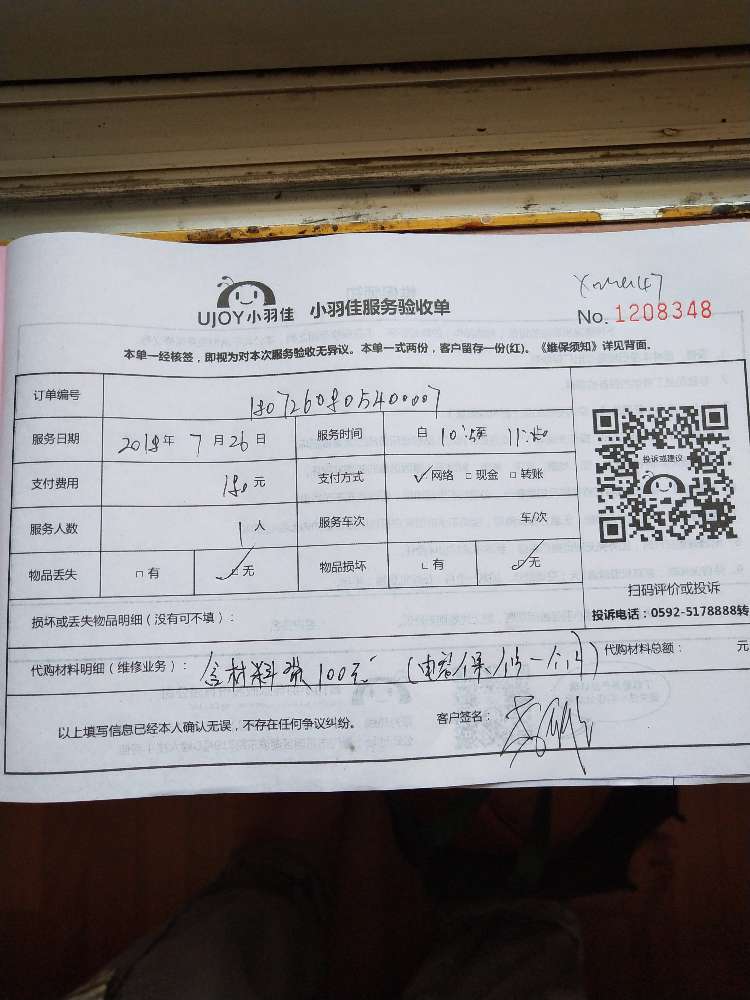 UJOY小羽佳 小羽佳服务验收单
No. 1208348
本单一经核签，即视为对本次服务验收无异议。本单一式两份，客户留存一份(红)。《维保须知》详见背面。
订单编号
服务日期 2018年 7月 26日 服务时间 自 至
支付费用 180元 支付方式 网络 现金 转账
服务人数 1人 服务车次 车/次
物品丢失 有 无 物品损坏 有 无
投诉或建议
扫码评价或投诉
投诉电话：0592-5178888转
损坏或丢失物品明细（没有可不填）：
代购材料明细（维修业务）： 含材料费100元 (电容保修一个月) 代购材料总额： 元
以上填写信息已经本人确认无误，不存在任何争议纠纷。 客户签名：